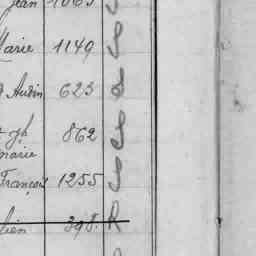 Jean 1063 S
Marie 1149 S
Audin 623 S
862 S
marie
François 1255 S
lien 398. R